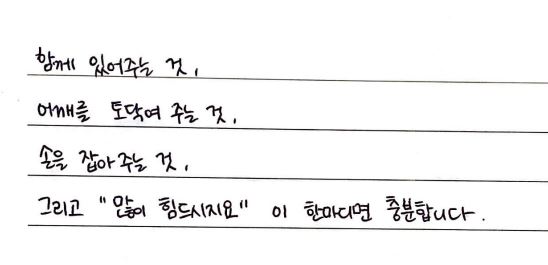 함께 있어주는 것,
어깨를 토닥여 주는 것,
손을 잡아주는 것,
그리고 "많이 힘드시지요" 이 한마디면 충분합니다.